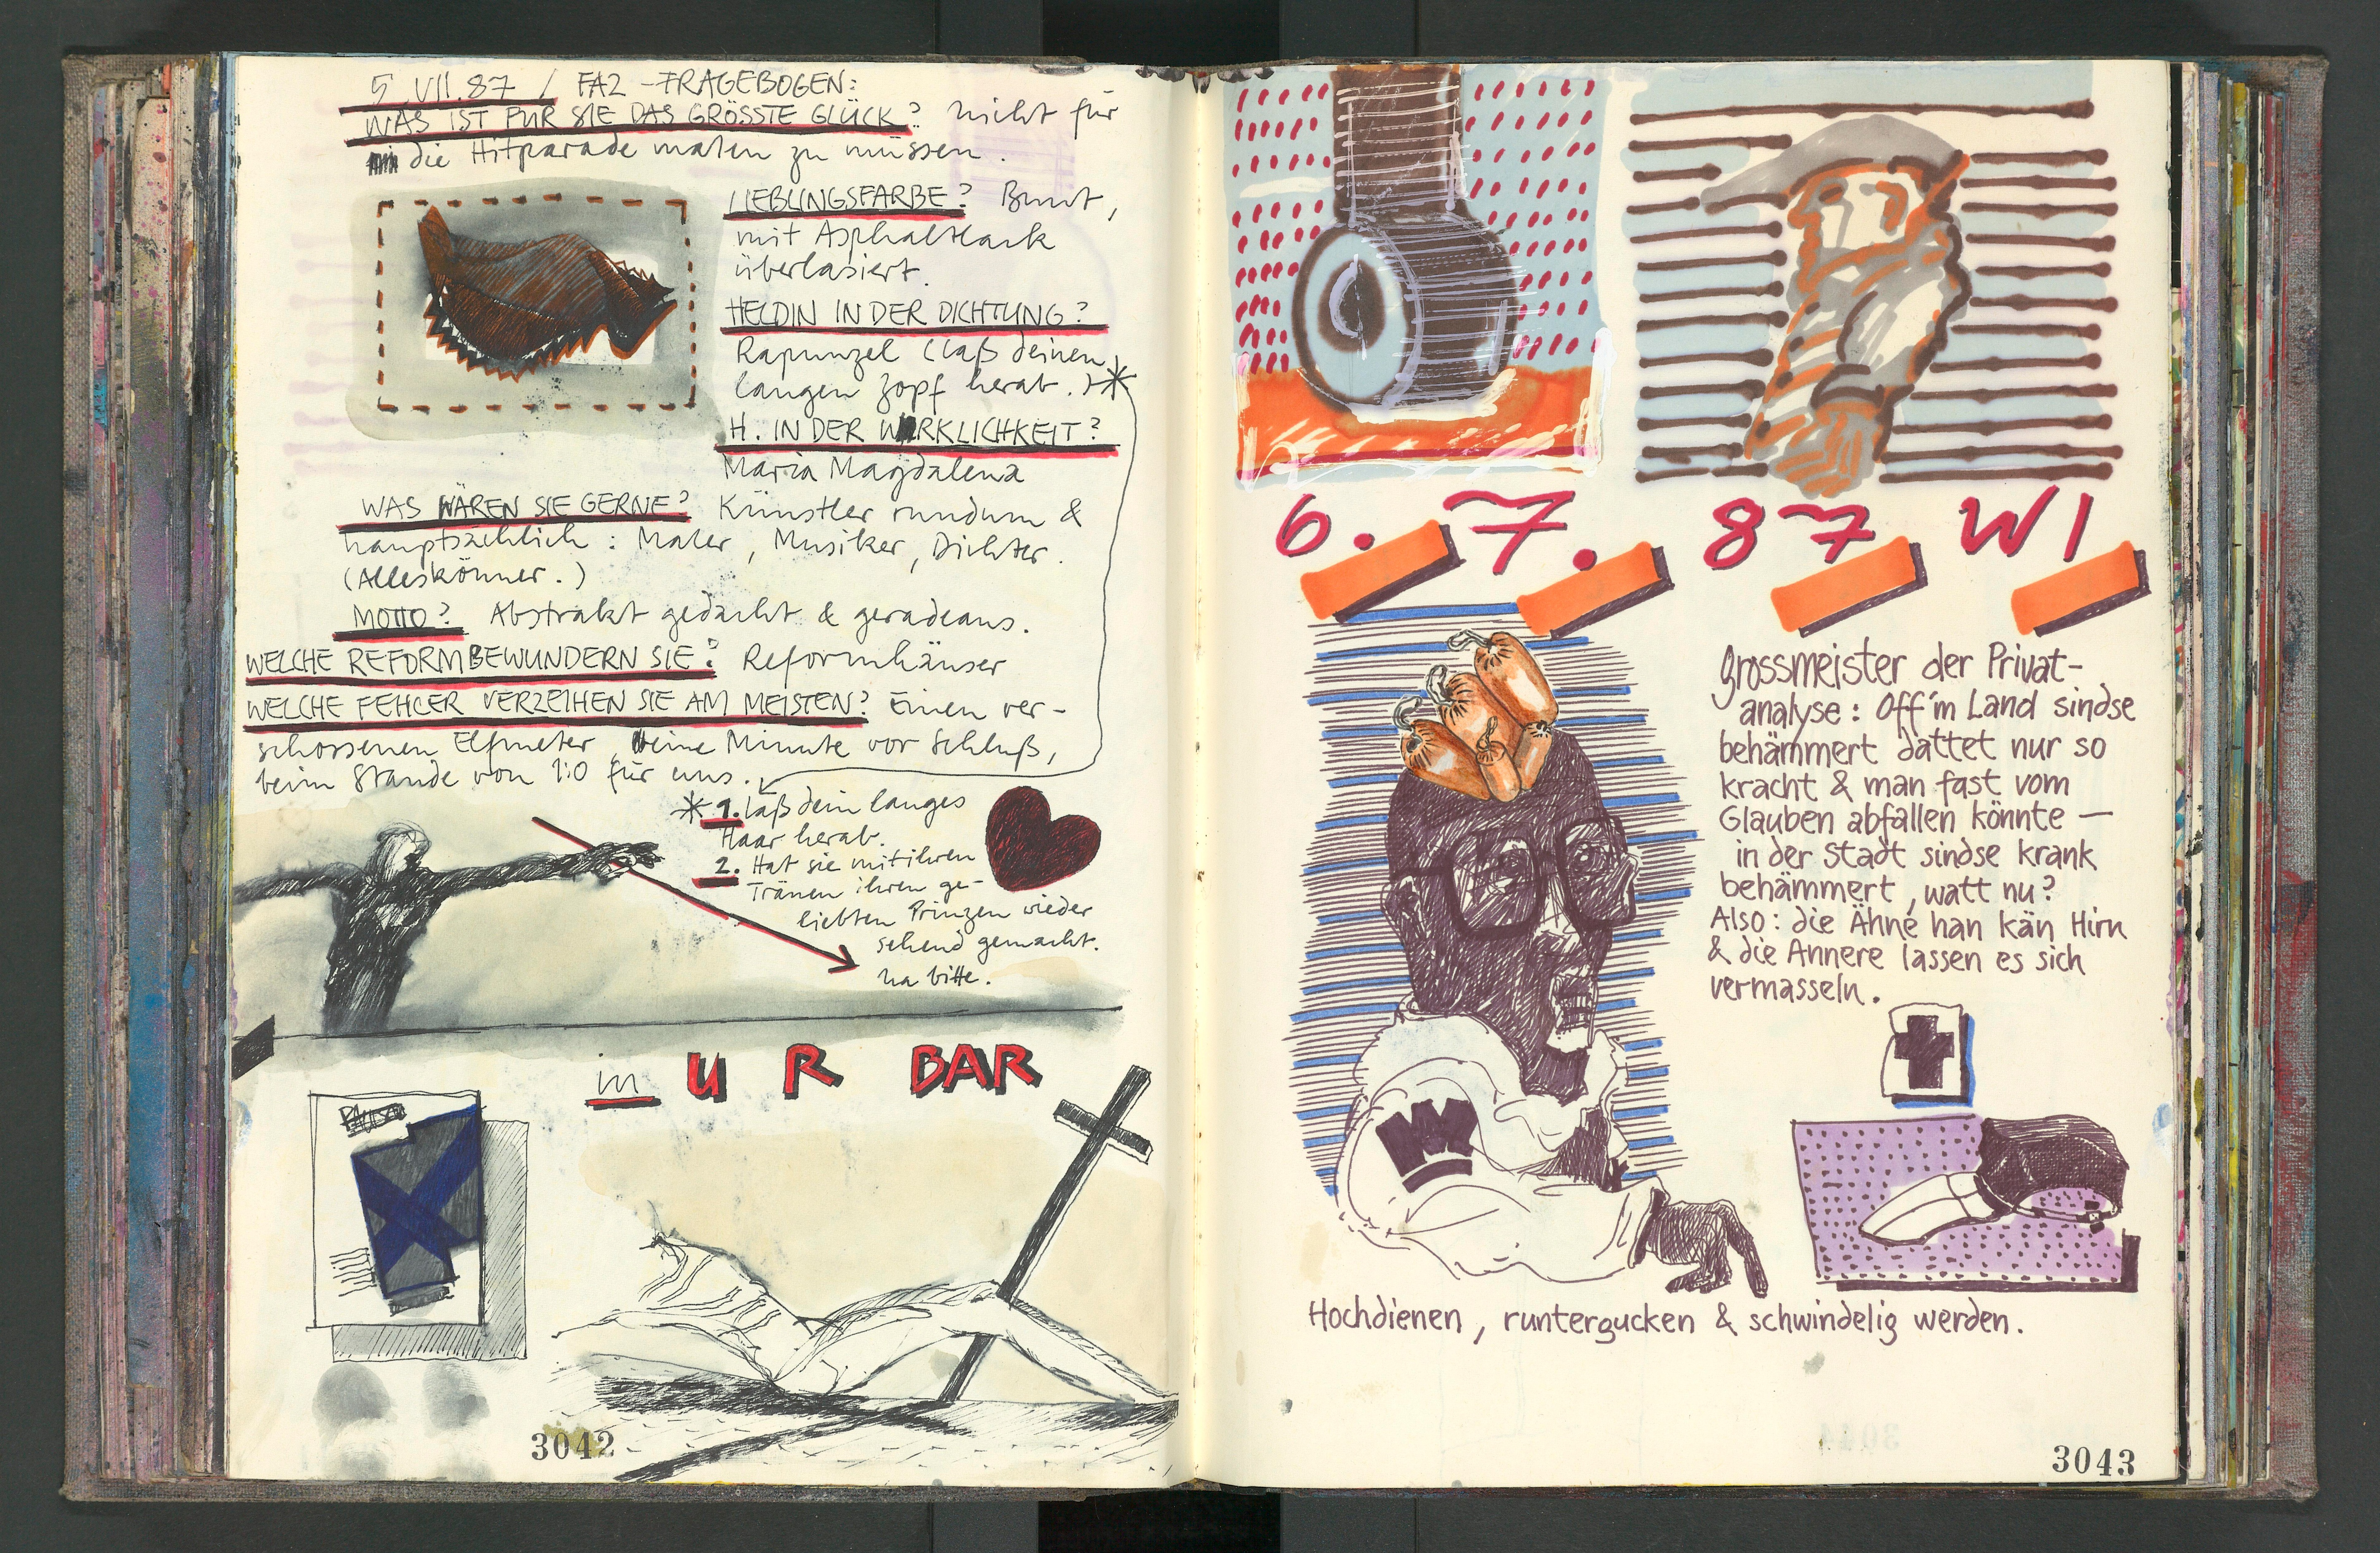 5.VII.87 / FAZ-FRAGEBOGEN:
WAS IST FÜR SIE DAS GRÖSSTE GLÜCK? Nicht für
die Hitparade malen zu müssen.
LIEBLINGSFARBE? Bunt,
mit Asphaltlack
überlasiert.
HELDIN IN DER DICHTUNG?
Rapunzel (laß deinen
langen Zopf herab.)*
H. IN DER WIRKLICHKEIT?
Maria Magdalena
WAS WÄREN SIE GERNE? Künstler rundum &
hauptsächlich: Maler, Musiker, Dichter.
(Alleskönner.)
MOTTO? Abstrakt gedacht & geradeaus.
WELCHE REFORM BEWUNDERN SIE? Reformhäuser
WELCHE FEHLER VERZEIHEN SIE AM MEISTEN? Einen ver-
schossenen Elfmeter, eine Minute vor Schluß,
beim Stande von 1:0 für uns.
* 1. laß dein langes
Haar herab.
2. Hat sie mit ihren
Tränen ihren ge-
liebten Prinzen wieder
sehend gemacht.
Na bitte.
in U R BAR
3042
6. 7. 87 WI
Grossmeister der Privat-
analyse: Off'm Land sindse
behämmert dattet nur so
kracht & man fast vom
Glauben abfallen könnte —
in der Stadt sindse krank
behämmert, watt nu?
Also: die Ähne han kän Hirn
& die Annere lassen es sich
vermasseln.
W
Hochdienen, runtergucken & schwindelig werden.
3043